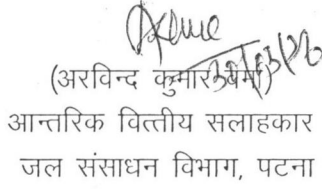 (अरविन्द कुमार वर्मा)
आन्तरिक वित्तीय सलाहकार
जल संसाधन विभाग, पटना